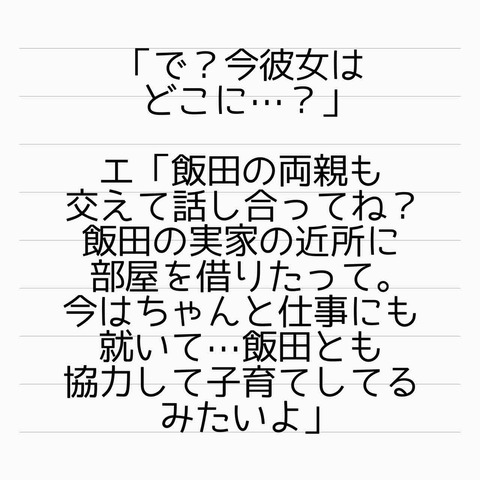 「で？今彼女は
どこに…？」
エ「飯田の両親も
交えて話し合ってね？
飯田の実家の近所に
部屋を借りたって。
今はちゃんと仕事にも
就いて…飯田とも
協力して子育てしてる
みたいよ」